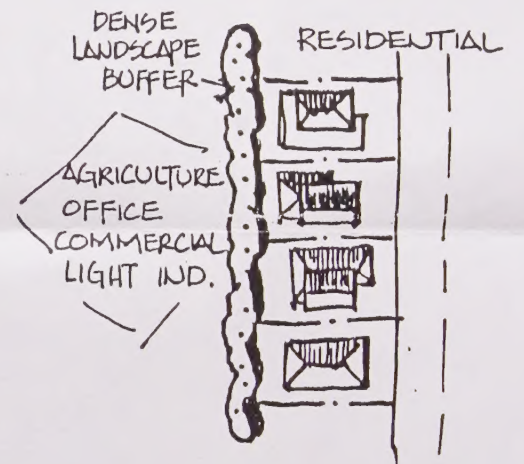 DENSE
LANDSCAPE
BUFFER
RESIDENTIAL
AGRICULTURE
OFFICE
COMMERCIAL
LIGHT IND.